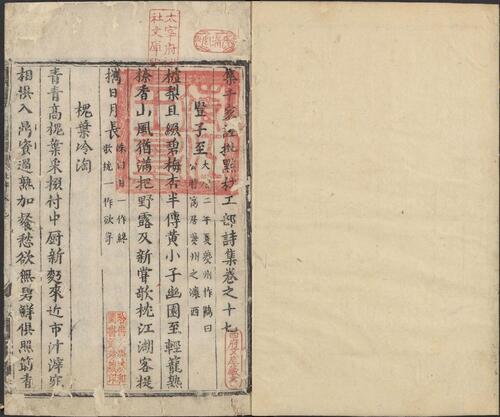 集千家註批點杜工部詩集卷之十七
豎子至
大曆二年夏夔州作鶴曰
公時寓居夔州之瀼西
樝梨且綴碧梅杏半傳黃小子幽園至輕籠熟
柰香山風猶滿把野露及新嘗欹枕江湖客提
攜日月長
洙曰日一作經
欹枕一作欲寄
槐葉冷淘
青青高槐葉采掇付中廚新麪來近市汁滓宛
相俱入鼎資過熟加餐愁欲無碧鮮俱照筯香
太宰府
社文庫